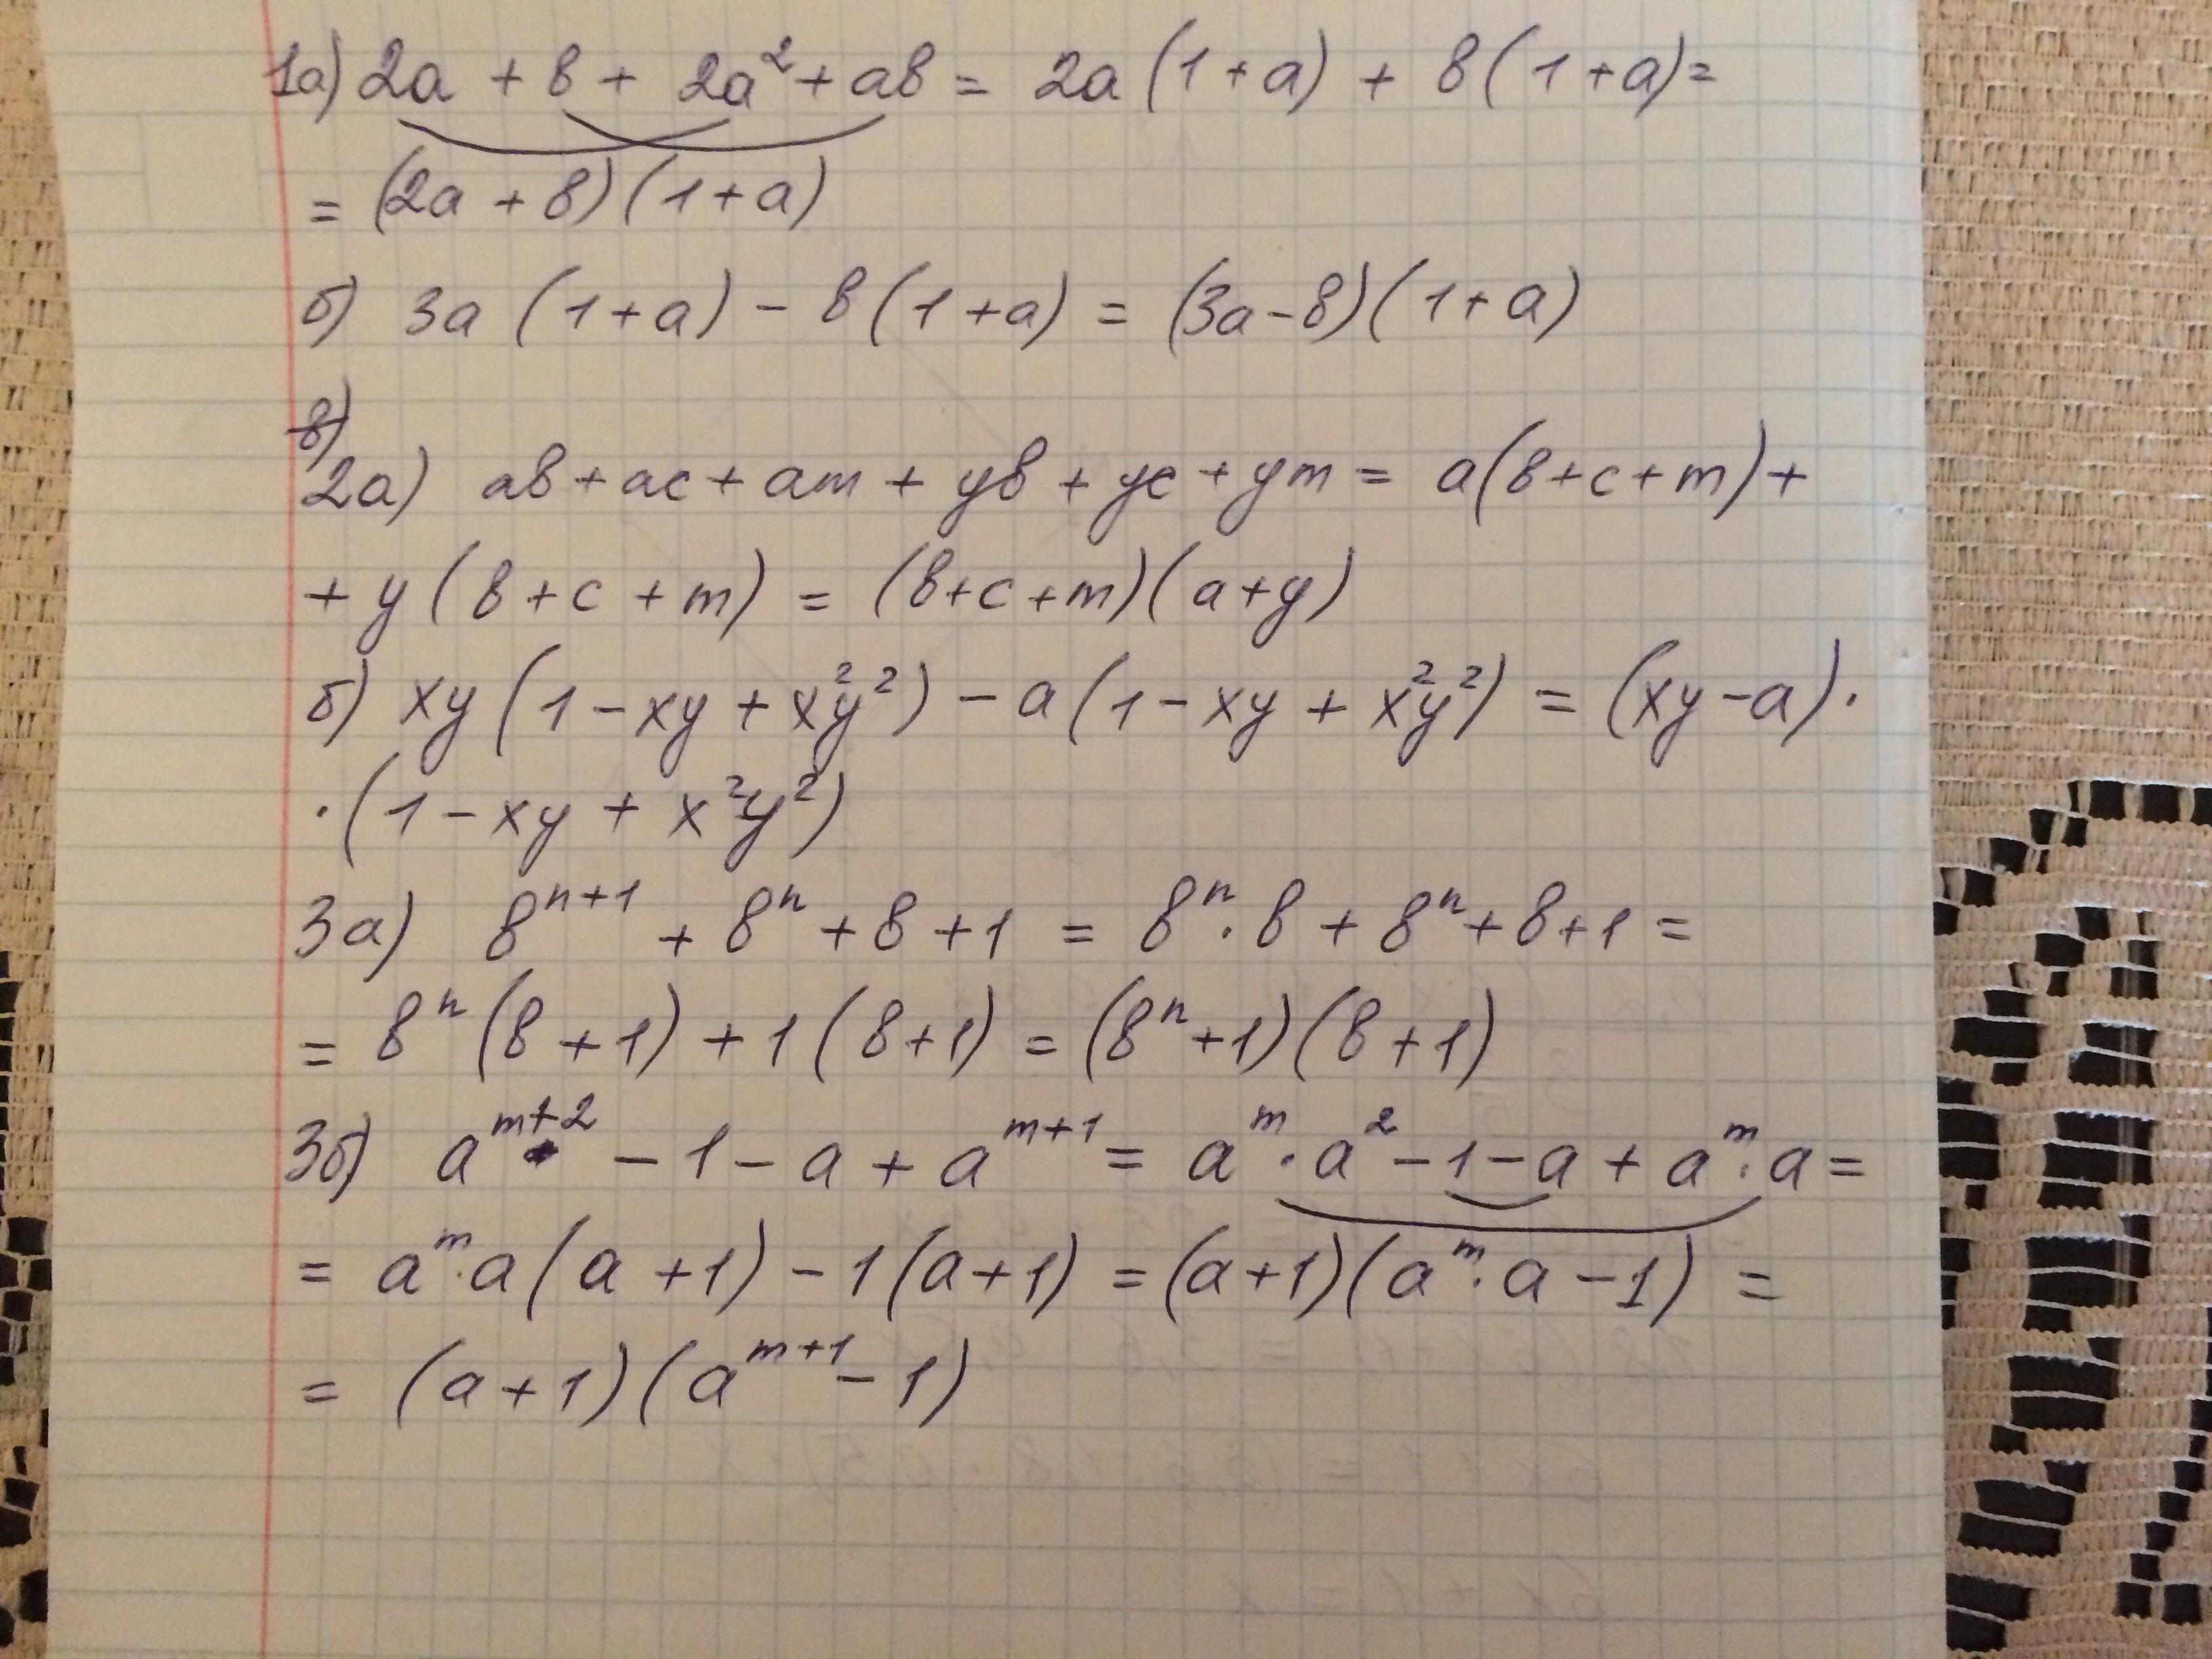 1а) 2a + в + 2a² + aв = 2a (1 + a) + в (1 + a) =
= (2a + в) (1 + a)
б) 3a (1 + a) - в (1 + a) = (3a - в) (1 + a)
в)
2а) aв + ac + am + yв + yc + ym = a(в + c + m) +
+ y (в + c + m) = (в + c + m) (a + y)
б) xy (1 - xy + x²y²) - a (1 - xy + x²y²) = (xy - a) ·
· (1 - xy + x²y²)
3а) вⁿ⁺¹ + вⁿ + в + 1 = вⁿ · в + вⁿ + в + 1 =
= вⁿ (в + 1) + 1 (в + 1) = (вⁿ + 1) (в + 1)
3б) aᵐ⁺² - 1 - a + aᵐ⁺¹ = aᵐ · a² - 1 - a + aᵐ · a =
= aᵐ · a (a + 1) - 1 (a + 1) = (a + 1) (aᵐ · a - 1) =
= (a + 1) (aᵐ⁺¹ - 1)